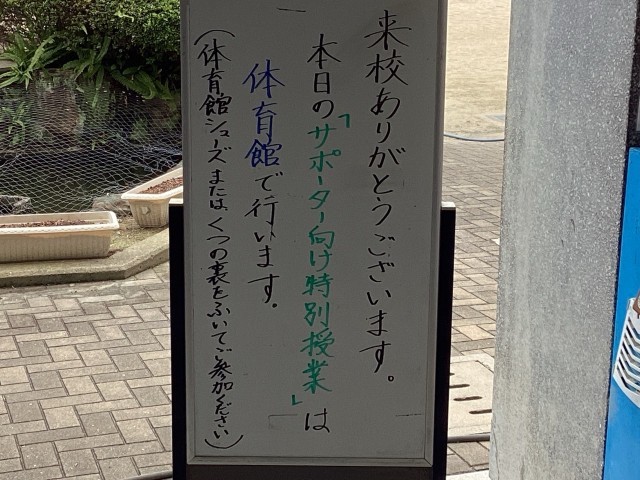 来校ありがとうございます。
本日の「サポーター向け特別授業」は
体育館で行います。
(体育館シューズまたはくつの裏をふいてご参加ください)